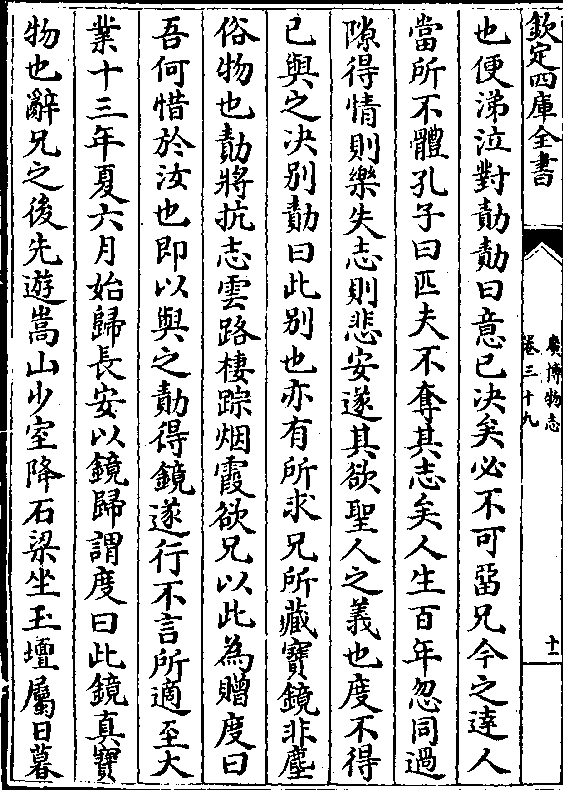 欽定四庫全書
廣博物志
卷三十九
十一
也便涕泣對勣勣曰意已决矣必不可畱兄今之達人
當所不體孔子曰匹夫不奪其志矣人生百年忽同過
隙得情則樂失志則悲安遂其欲聖人之義也度不得
已與之决別勣曰此别也亦有所求兄所藏寶鏡非塵
俗物也勣將抗志雲路棲踪烟霞欲兄以此為贈度曰
吾何惜於汝也即以與之勣得鏡遂行不言所適至大
業十三年夏六月始歸長安以鏡歸謂度曰此鏡真寶
物也辭兄之後先遊嵩山少室降石梁坐玉壇屬日暮